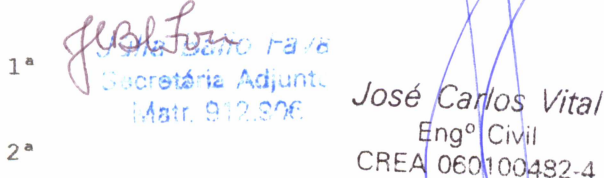 1ª
Secretária Adjunt.
Matr. 912.906
José Carlos Vital
Engº Civil
CREA 060100482-4
2ª